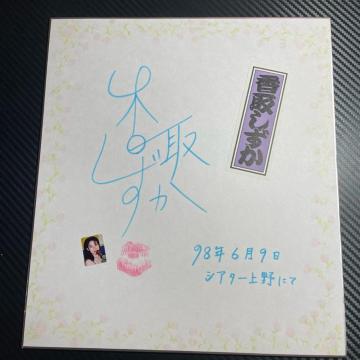 香取
しずか
香取しずか
98年6月9日
シアター上野にて